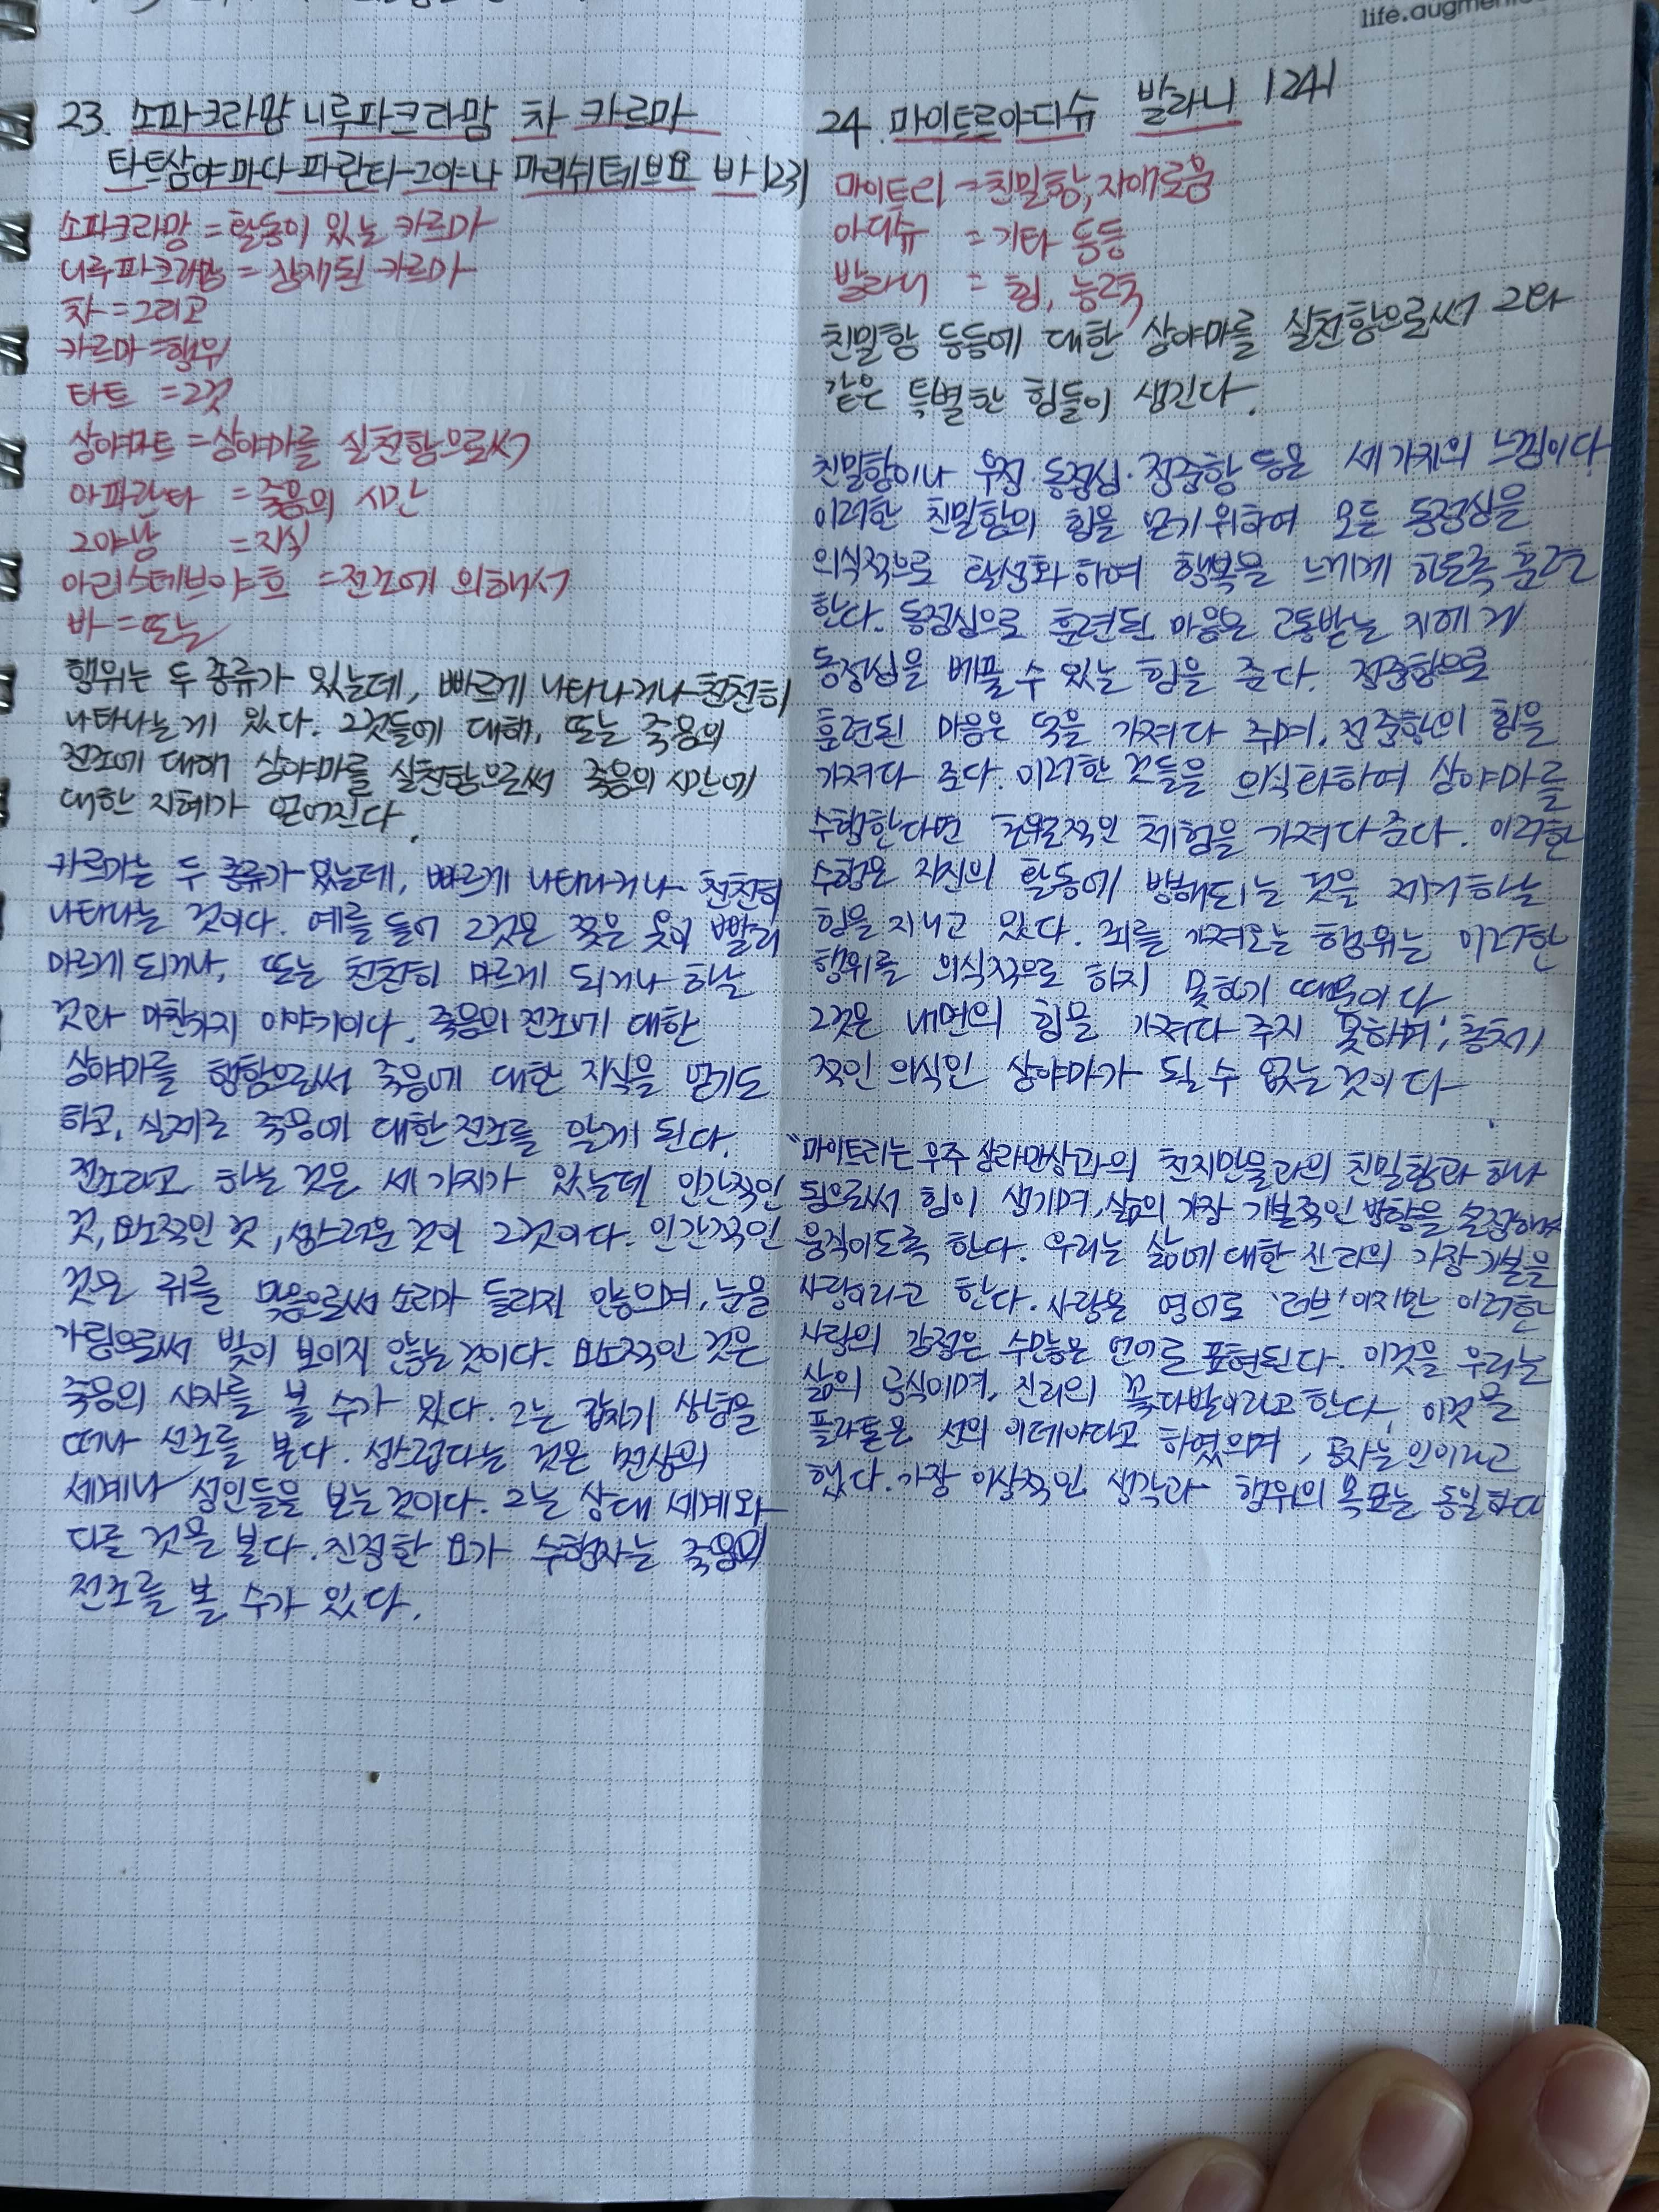 life.augmente
23. 소파크라맘 니루파크라맘 차 카르마
타트삼야마다 파란타 그야나 마리쉬테브요 바 |23|
소파크라망 = 활동이 있는 카르마
니루파크라망 = 잠재된 카르마
차 = 그리고
카르마 = 행위
타트 = 그것
상야마트 = 상야마를 실천함으로써
아파란타 = 죽음의 시간
그야남 = 지식
아리스테브야흐 = 전조에 의해서
바 = 또는
행위는 두 종류가 있는데, 빠르게 나타나거나 천천히
나타나는게 있다. 그것들에 대해, 또는 죽음의
전조에 대해 상야마를 실천함으로써 죽음의 시간에
대한 지혜가 얻어진다.
카르마는 두 종류가 있는데, 빠르게 나타나거나 천천히
나타나는 것이다. 예를 들어 그것은 젖은 옷이 빨리
마르게 되거나, 또는 천천히 마르게 되거나 하는
것과 마찬가지 이야기이다. 죽음의 전조에 대한
상야마를 행함으로써 죽음에 대한 지식을 얻기도
하고, 실제로 죽음에 대한 전조를 알게 된다.
전조라고 하는 것은 세 가지가 있는데 인간적인
것, 요소적인 것, 성스러운 것이 그것이다. 인간적인
것은 귀를 막음으로써 소리가 들리지 않으며, 눈을
가림으로써 빛이 보이지 않는 것이다. 요소적인 것은
죽음의 사자를 볼 수가 있다. 그는 갑자기 상념을
떠나 선조를 본다. 성스럽다는 것은 천상의
세계나 성인들을 보는 것이다. 그는 상대 세계와
다른 것을 본다. 진정한 요가 수행자는 죽음의
전조를 볼 수가 있다.
24. 마이트르야디슈 발라니 |24|
마이트리 = 친밀함, 자애로움
아디슈 = 기타 등등
발라니 = 힘, 능력
친밀함 등등에 대한 상야마를 실천함으로써 그와
같은 특별한 힘들이 생긴다.
친밀함이나 우정·동정심·정중함 등은 세가지의 느낌이다
이러한 친밀함의 힘을 얻기위하여 모든 동정심을
의식적으로 활성화하여 행복을 느끼게 하도록 훈련
한다. 동정심으로 훈련된 마음은 고통받는 자에게
동정심을 베풀 수 있는 힘을 준다. 정중함으로
훈련된 마음은 덕을 가져다 주며, 정중함의 힘을
가져다 준다. 이러한 것들을 의식화하여 상야마를
수행한다면 초월적인 체험을 가져다준다. 이러한
수행은 자신의 활동에 방해되는 것을 제거하는
힘을 지니고 있다. 죄를 가져오는 행위는 이러한
행위를 의식적으로 하지 못하기 때문이다
그것은 내면의 힘을 가져다 주지 못하며, 총체
적인 의식인 상야마가 될 수 없는 것이다
"마이트리는 우주 삼라만상과의 천지만물과의 친밀함과 하나
됨으로써 힘이 생기며, 삶의 가장 기본적인 방향을
움직이도록 한다. 우리는 삶에 대한 진리의 가장 기본을
사랑이라고 한다. 사랑은 영어로 '러브'이지만 이러한
사랑의 감정은 수많은 언어로 표현된다. 이것을 우리는
삶의 공식이며, 진리의 꽃다발이라고 한다, 이것을
플라톤은 선의 이데아라고 하였으며, 공자는 인이라고
했다. 가장 이상적인 생각과 행위의 목표는 동일하다